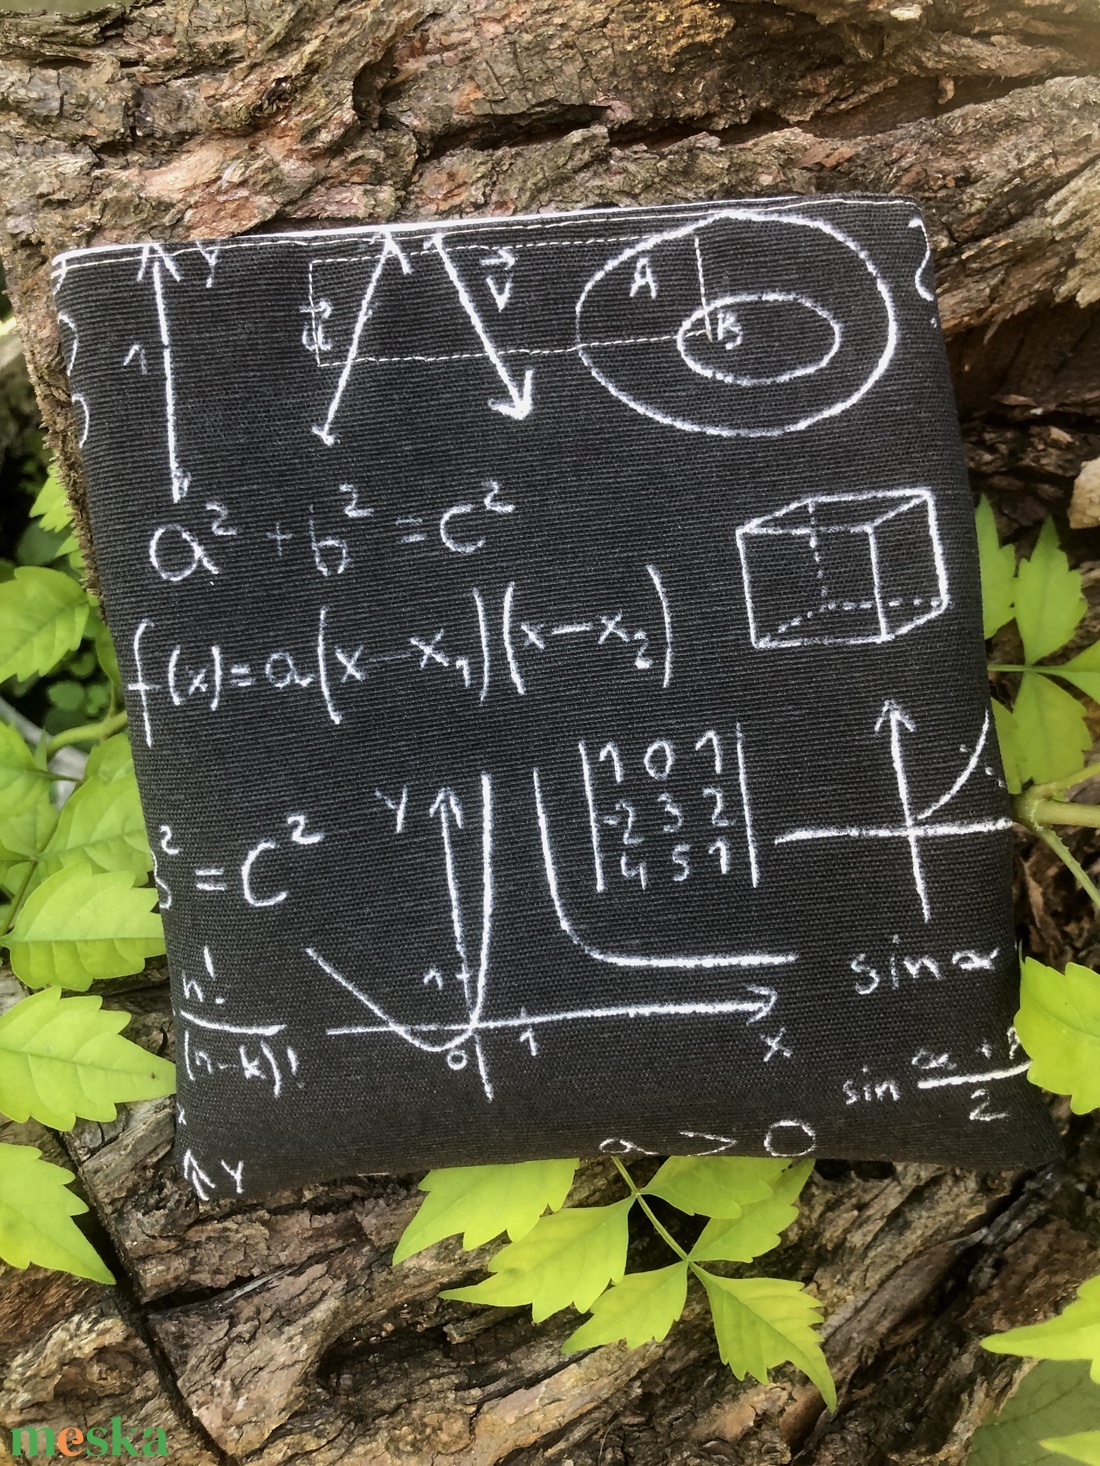 Y
1
v⃗
A
B
a² + b² = c²
f(x)=a(x-x₁)(x-x₂)
Y
1 0 1
-2 3 2
4 5 1
² = c²
1
n!
(n-k)!
0
1
x
sin α
sin
2
a > 0
Y
meska